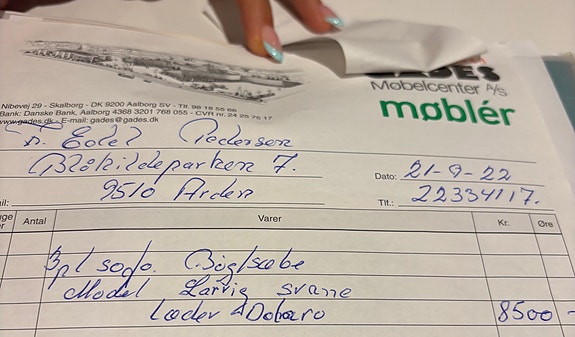 GADES
Møbelcenter A/S
møblér
Nibevej 29 - Skalborg - DK 9200 Aalborg SV - Tlf. 98 18 55 66
Bank: Danske Bank, Aalborg 4368 3201 768 055 - CVR nr. 24 25 76 17
www.gades.dk - E-mail: gades@gades.dk
Pedersen
Blåkildeparken 7.
9510 Arden
Dato: 21-9-22
Tlf.: 22334117.
Antal Varer Kr. Øre
3 pl sofa. Bøgsæbe
Model Larvig svane
Læder 8500 -